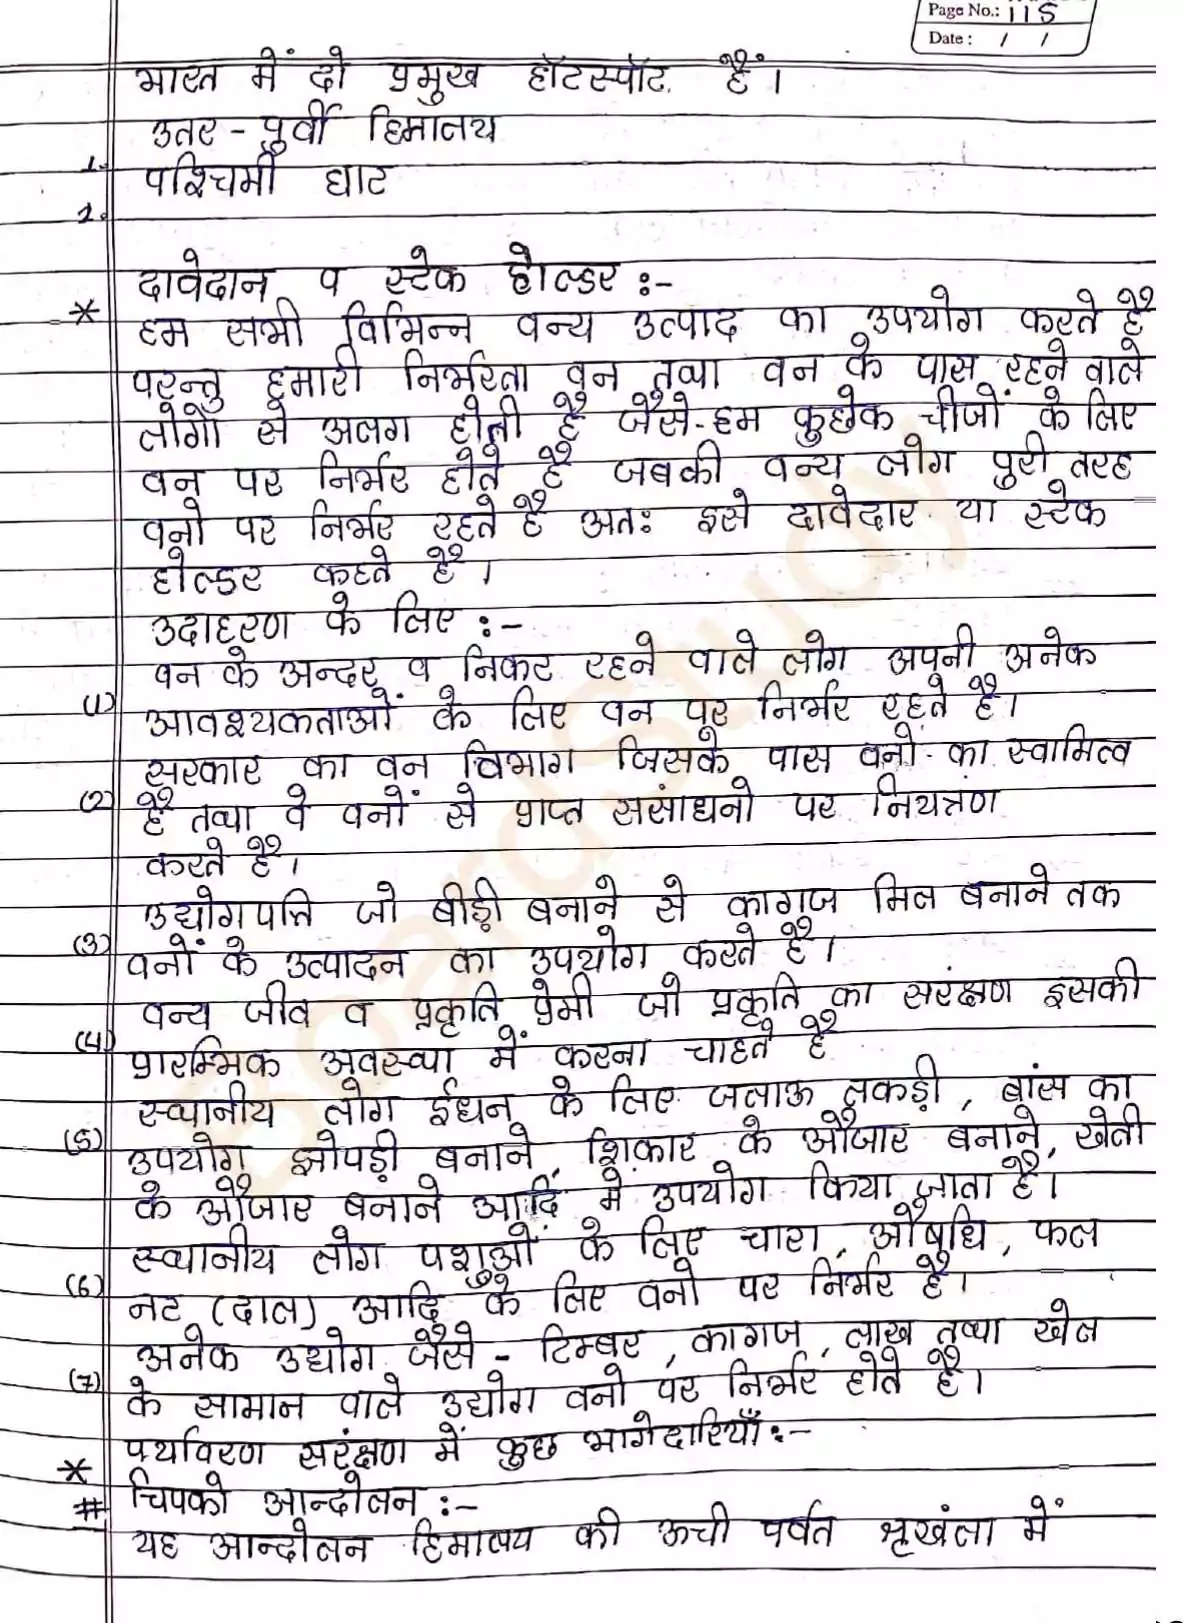 Page No.: 115
Date : / /
भारत में दो प्रमुख हॉटस्पॉट हैं।
1. उतर - पुर्वी हिमालय
2. पश्चिमी घाट
* दावेदान व स्टेक होल्डर :-
हम सभी विभिन्न वन्य उत्पाद का उपयोग करते है
परन्तु हमारी निर्भरता वन तथा वन के पास रहने वाले
लोगों से अलग होती है जैसे-हम कुछेक चीजों के लिए
वन पर निर्भर होते है जबकी वन्य लोग पुरी तरह
वनो पर निर्भर रहते है अतः इसे दावेदार या स्टेक
होल्डर कहते है।
उदाहरण के लिए :-
(1) वन के अन्दर व निकट रहने वाले लोग अपनी अनेक
आवश्यकताओं के लिए वन पर निर्भर रहते है।
(2) सरकार का वन विभाग जिसके पास वनो का स्वामित्व
है तथा वे वनों से प्राप्त ससांधनो पर नियत्रंण
करते है।
(3) उद्योगपति जो बीड़ी बनाने से कागज मिल बनाने तक
वनों के उत्पादन का उपयोग करते है।
(4) वन्य जीव व प्रकृति प्रेमी जो प्रकृति का सरंक्षण इसकी
प्रारम्भिक अवस्था में करना चाहते है
(5) स्थानीय लोग ईधन के लिए जलाऊ लकड़ी, बांस का
उपयोग झोपड़ी बनाने, शिकार के औजार बनाने, खेती
के औजार बनाने आदि मे उपयोग किया जाता है।
(6) स्थानीय लोग पशुओं के लिए चारा, औषुधि, फल
नट (दाल) आदि के लिए वनो पर निर्भर है।
(7) अनेक उद्योग जैसे - टिम्बर, कागज, लाख तथा खेल
के सामान वाले उद्योग वनो पर निर्भर होते है।
* पर्यावरण सरंक्षण में कुछ भागेदारियाँ :-
# चिपको आन्दोलन :-
यह आन्दोलन हिमालय की ऊची पर्वत श्रृखंला में
Board Study